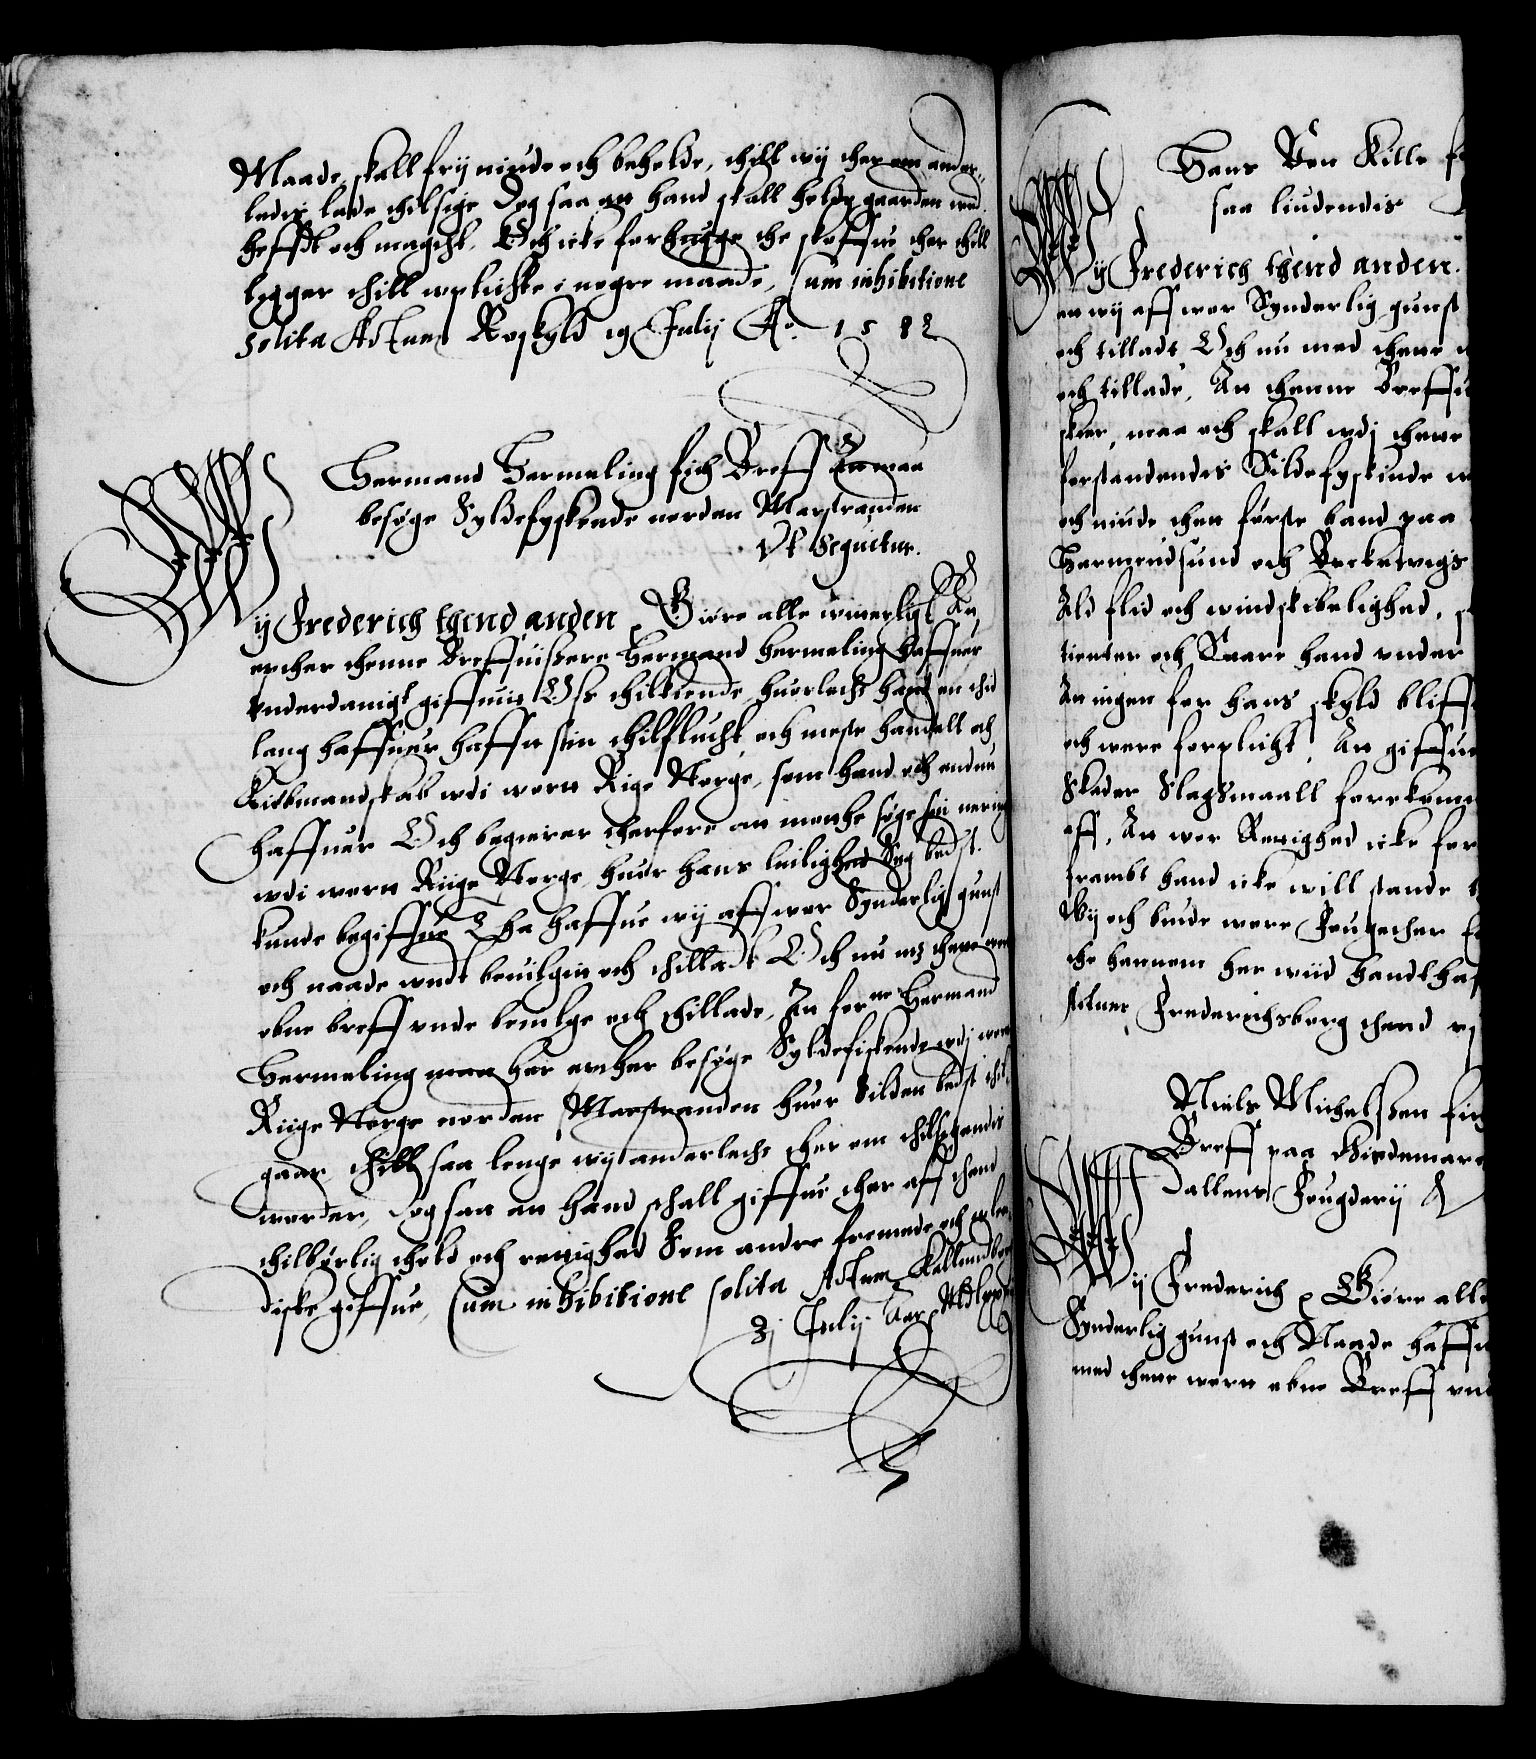 Maade, skall frij niude och beholde, thill wij ther om ander-
ledis lade thilsige Dog saa an hand skall holde gaarden wed
heffdt och magcht, Och icke forhugge the skoffue ther thill
legger thill wplichtt i nogre maade, Cum inhibitione
solita Actum Roskyld 19 Julij Ao 1582
Hermand Hermeling fich Breff An maa
besøge Syldefyskende norden Marstranden
Vt sequitur.
Wij Frederich thend anden, Giøre alle witterligt An
epther thenne Breffuisere Hermand Hermeling haffuer
vnderdanigst giffuit Oss thilkiende, huorledes hand en thid
lang haffuer hafft sin thilflucht och meste handell och
Kiøbmandskab wdi wort Rige Norge, som hand och endnu
haffuer Och begierer therfore an motte søge sin nering
wdi wort Riige Norge, huor hans leilighed sig best
kunde begiffue Tha haffue wij aff wor Synderlig gunst
och naade wndt beuilgit och thilladt Och nu mz thette wort
obne breff vnde beuilge och thillade, An forne Hermand
Hermeling maa her epther besøge Syldefiskende wdj wort
Riige Norge norden Marstranden huor Silden best thil
gaar, thill saa lenge wij anderledes ther om thilsigendis
worder, Dog saa an hand schall giffue ther aff thend
thilbørlig thold och rettighed Som andre fremede och wlen-
diske giffue, Cum inhibitione solita Actum Kallundborg
3j Julij Aar Mdlxxxij
Hans Von Kille
saa liudendis
Wij Frederich thend anden.
an wij aff wor Synderlig gunst
och tilladt, Och nu med thette
och tillade, An thenne Breffu
skier, maa och skall wdj thette
forstandendes Sildefyskinde
och niude then første band paa
Hermendsund och Brekewigs
Ald flid och windskibelighed,
tienter och Suare hand vnder
An ingen for hans skyld bliff
och were forplicht, An giffue
Skader Slagsmaall forekom
aff, An wor Rettighed icke for
frambt hand icke will stande
Wij och biude wore Fougether
the hannem her wiid handtha
Actum Frederichsborg thend
Niels Michelssen fich
Breff paa Giedemar
Dallens Fougderij
Wij Frederich Giøre alle
Synderlig gunst och Naade haffu
med thette wort obne Breff vnd